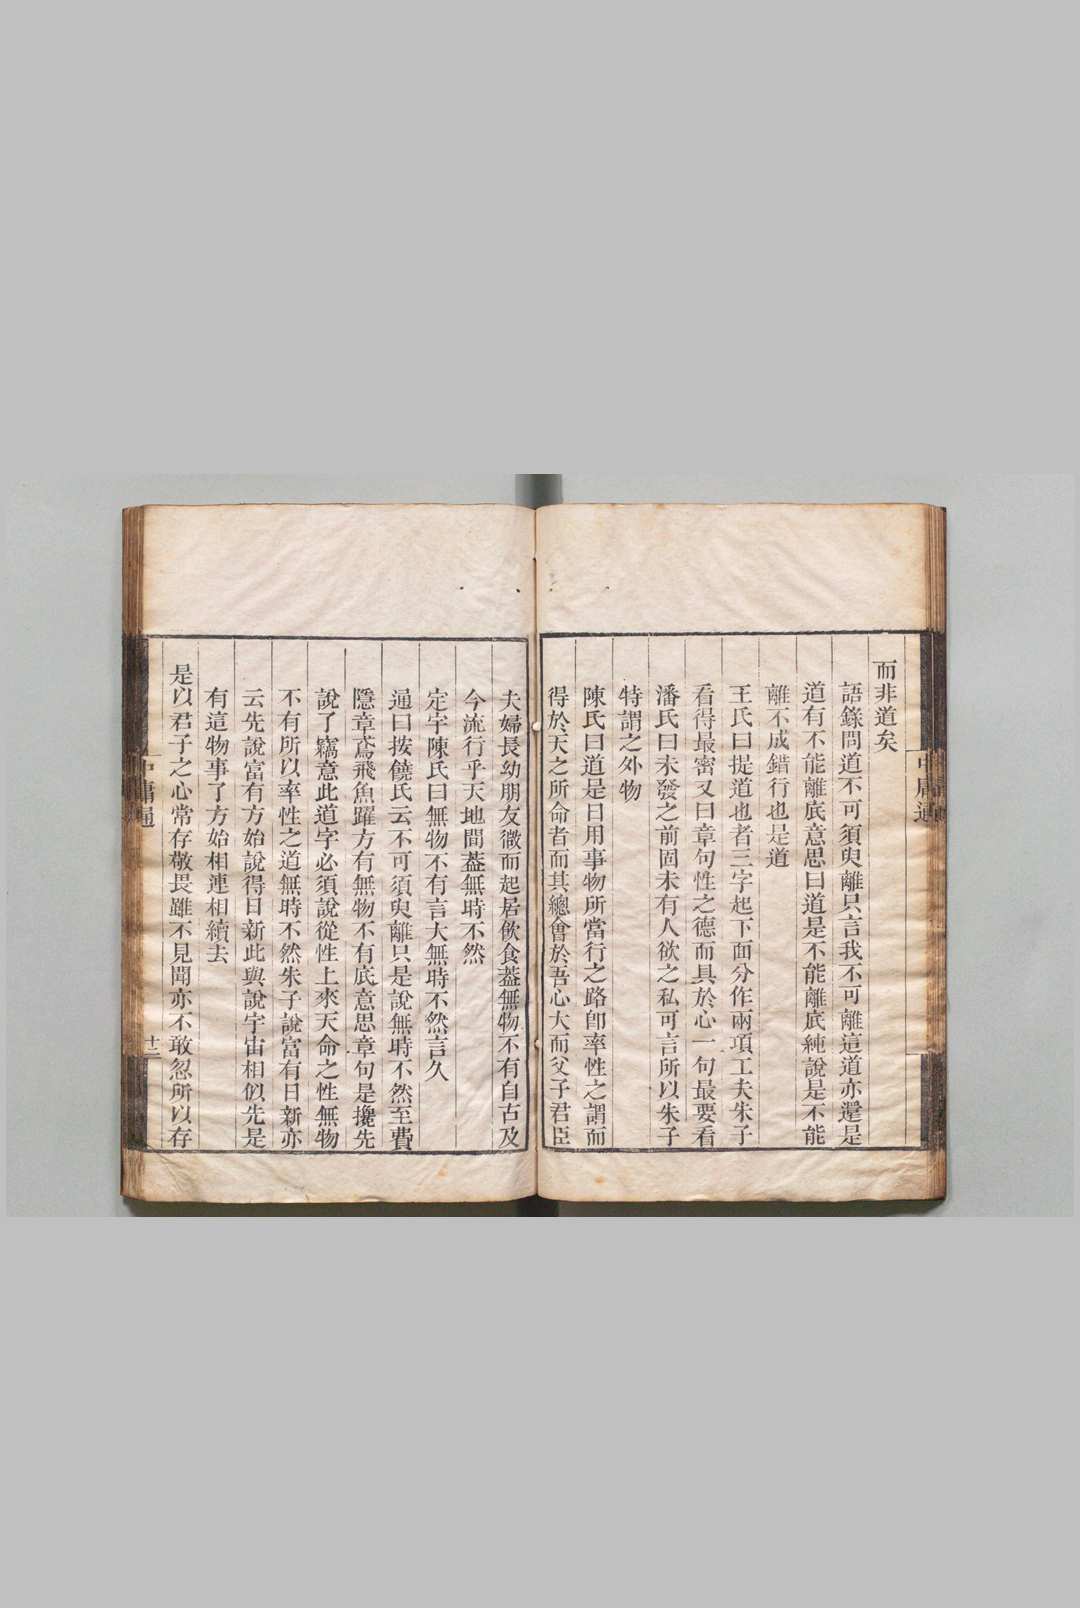 而非道矣
語錄問道不可須臾離只言我不可離這道亦還是
道有不能離底意思曰道是不能離底純說是不能
離不成錯行也是道
王氏曰提道也者三字起下面分作兩項工夫朱子
看得最密又曰章句性之德而具於心一句最要看
潘氏曰未發之前固未有人欲之私可言所以朱子
特謂之外物
陳氏曰道是日用事物所當行之路卽率性之謂而
得於天之所命者而其總會於吾心大而父子君臣
夫婦長幼朋友微而起居飲食蓋無物不有自古及
今流行乎天地間蓋無時不然
定宇陳氏曰無物不有言大無時不然言久
通曰按饒氏云不可須臾離只是說無時不然至費
隱章鳶飛魚躍方有無物不有底意思章句是攙先
說了竊意此道字必須說從性上來天命之性無物
不有所以率性之道無時不然朱子說富有日新亦
云先說富有方始說得日新此與說宇宙相似先是
有這物事了方始相連相續去
是以君子之心常存敬畏雖不見聞亦不敢忽所以存
中庸通
十二